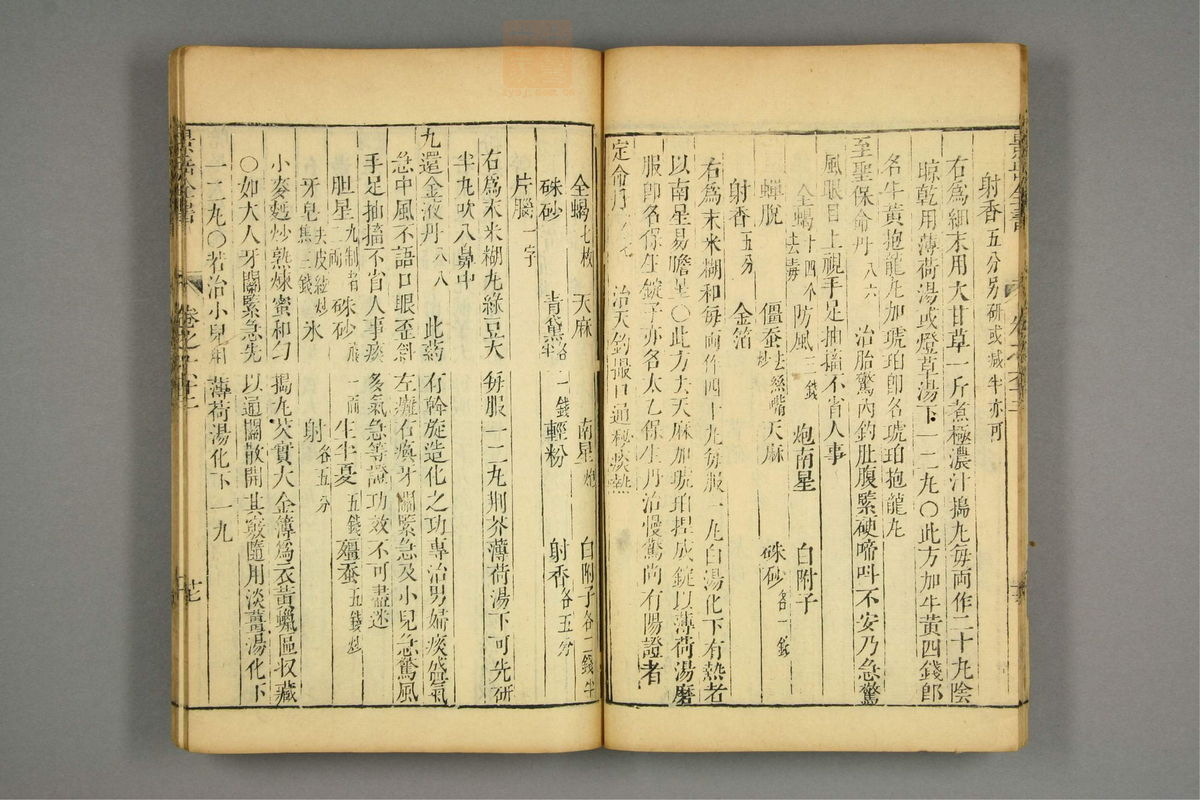 射香五分另研或減半亦可
右爲細末用大甘草一斤煮極濃汁搗丸每両作二十丸陰
晾乾用薄荷湯或燈草湯下一二丸〇此方加牛黃四錢卽
名牛黃抱龍丸加琥珀卽名琥珀抱龍丸
至聖保命丹八六 治胎驚內釣肚腹緊硬啼叫不安乃急驚
風眼目上視手足抽搐不省人事
全蝎十四个去毒 防風二錢 炮南星 白附子
蟬脫 僵蚕去絲嘴炒 天麻 硃砂各一錢
射香五分 金箔
右爲末米糊和每両作四十丸每服一丸白湯化下有熱者
以南星易膽星〇此方去天麻加琥珀捏成錠以薄荷湯磨
服卽名保生錠子亦名太乙保生丹治慢驚尚有陽證者
定命丹 治天釣撮口通秘痰熱
全蝎七枚 天麻 南星炮 白附子各二錢半
硃砂 青黛各半 一錢 輕粉 射香各五分
片腦一字
右爲末米糊丸綠豆大每服一二丸荆芥薄荷湯下可先研
半丸吹入鼻中
九還金液丹八八 此葯有幹旋造化之功專治男婦痰盛氣
急中風不語口眼歪斜左癱右瘓牙關緊急及小兒急驚風
手足抽搐不省人事痰多氣急等證功效不可盡述
胆星九制者二両 硃砂飛一両 生半夏五錢 殭蚕五錢炒
牙皂去皮絃炒焦三錢 氷 射各五分
小麥麪炒熟煉蜜和勻搗丸芡實大金簿爲衣黃蠟匾收藏
〇如大人牙關緊急先以通關散開其竅隨用淡薑湯化下
一二丸〇若治小兒用薄荷湯化下一丸